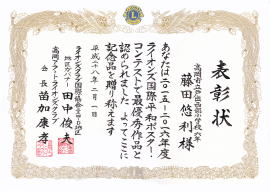 表彰状
高岡市立戸出西部小学校六年
藤田悠利様
あなたは二〇一五ー二〇一六年度
ライオンズ国際平和ポスター・
コンテストで最優秀作品と
認められました よってここに
記念品を贈り称えます
平成二十八年二月一日
ライオンズクラブ国際協会
地区ガバナー 田中俊夫
高岡アラートライオンズクラブ
会長 苗加康孝